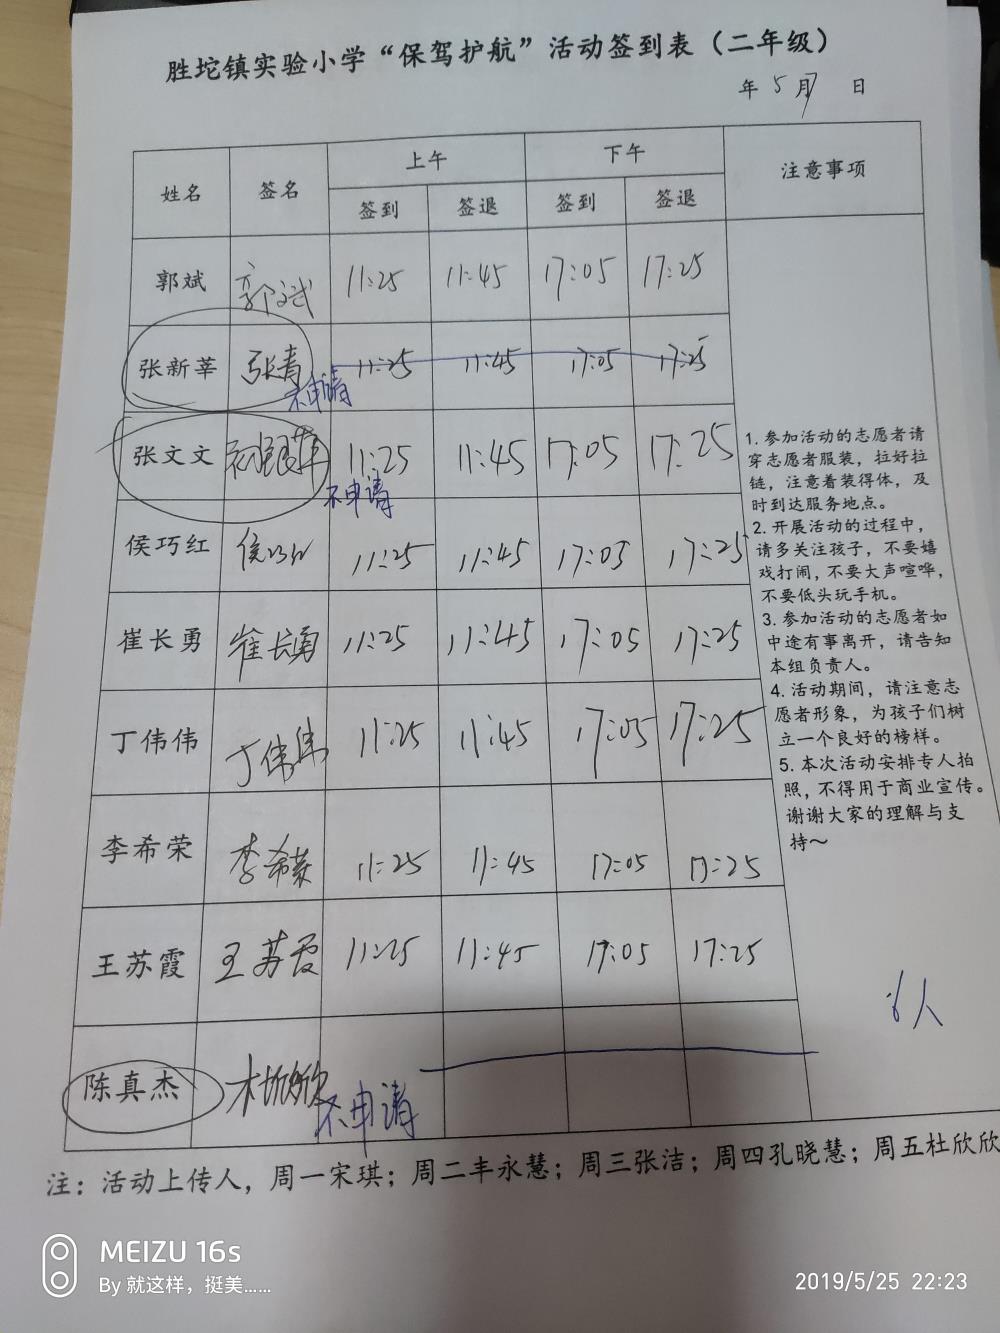 胜坨镇实验小学“保驾护航”活动签到表（二年级）
年 5 月 7 日
姓名 签名 上午 下午 注意事项
签到 签退 签到 签退
郭斌 郭斌 11:25 11:45 17:05 17:25
张新莘 张青 11:25 11:45 17:05 17:25
不申请
张文文 11:25 11:45 17:05 17:25
不申请
侯巧红 侯巧红 11:25 11:45 17:05 17:25
崔长勇 崔长勇 11:25 11:45 17:05 17:25
丁伟伟 丁伟伟 11:25 11:45 17:05 17:25
李希荣 李希荣 11:25 11:45 17:05 17:25
王苏霞 王苏霞 11:25 11:45 17:05 17:25
陈真杰 不申请
1. 参加活动的志愿者请
穿志愿者服装，拉好拉
链，注意着装得体，及
时到达服务地点。
2. 开展活动的过程中，
请多关注孩子，不要嬉
戏打闹，不要大声喧哗，
不要低头玩手机。
3. 参加活动的志愿者如
中途有事离开，请告知
本组负责人。
4. 活动期间，请注意志
愿者形象，为孩子们树
立一个良好的榜样。
5. 本次活动安排专人拍
照，不得用于商业宣传。
谢谢大家的理解与支
持～
6人
注：活动上传人，周一宋琪；周二丰永慧；周三张洁；周四孔晓慧；周五杜欣欣
MEIZU 16s
By 就这样，挺美......
2019/5/25 22:23